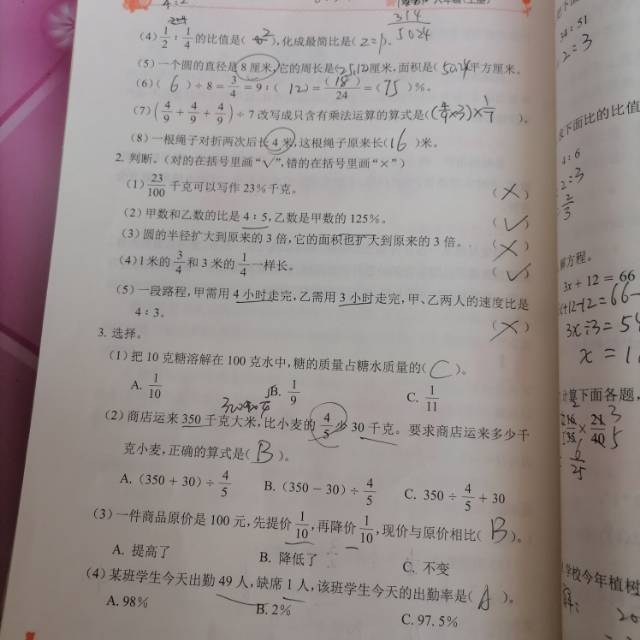 4:2
314
5024
(4) 1/2 : 1/4 的比值是( 2 ),化成最简比是( 2=1 )。
(5) 一个圆的直径是8厘米,它的周长是(25.12)厘米,面积是(50.24)平方厘米。
(6) ( 6 )÷8=3/4=9:( 12 )=(18)/24=( 75 )%。
(7) (4/9+4/9+4/9)÷7改写成只含有乘法运算的算式是( (4/9×3)×1/7 )。
(8) 一根绳子对折两次后长4米,这根绳子原来长( 16 )米。
2. 判断。(对的在括号里画“√”,错的在括号里画“×”)
(1) 23/100千克可以写作23%千克。 (×)
(2) 甲数和乙数的比是4:5,乙数是甲数的125%。 (√)
(3) 圆的半径扩大到原来的3倍,它的面积也扩大到原来的3倍。 (×)
(4) 1米的3/4和3米的1/4一样长。 (√)
(5) 一段路程,甲需用4小时走完,乙需用3小时走完,甲、乙两人的速度比是
4:3。 (×)
3. 选择。
(1) 把10克糖溶解在100克水中,糖的质量占糖水质量的( C )。
A. 1/10 B. 1/9 C. 1/11
(2) 商店运来350千克大米,比小麦的4/5少30千克。要求商店运来多少千
克小麦,正确的算式是( B )。
A. (350+30)÷4/5 B. (350-30)÷4/5 C. 350÷4/5+30
(3) 一件商品原价是100元,先提价1/10,再降价1/10,现价与原价相比( B )。
A. 提高了 B. 降低了 C. 不变
(4) 某班学生今天出勤49人,缺席1人,该班学生今天的出勤率是( A )。
A. 98% B. 2% C. 97.5%
34:51
2:3
下面比的比值
4:6
2:3
2/3
解方程。
3x+12=66
+12-12=66-
3x÷3=54
x=1
计算下面各题,
学校今年植树